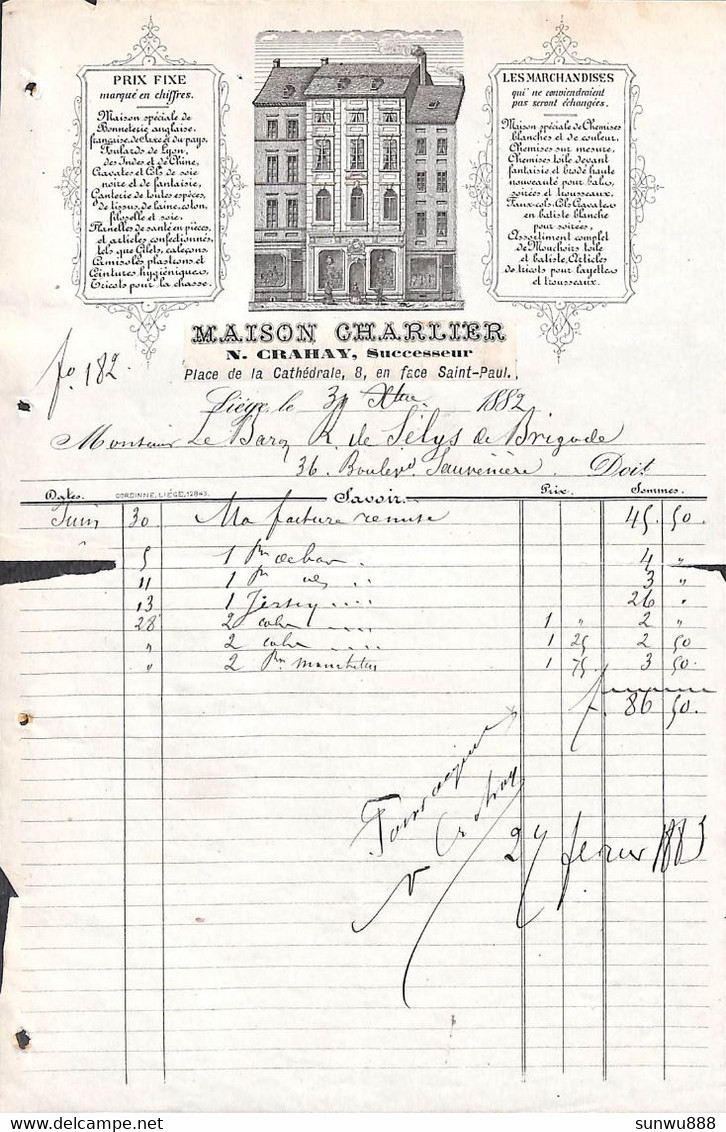 PRIX FIXE
marqué en chiffres.
Maison spéciale de
Bonneterie anglaise,
française, de Saxe & du pays,
Foulards de Lyon,
des Indes et de Chine,
Cravates et Cols de soie
noire et de fantaisie,
Ganterie de toutes espèces,
de tissus, de laine, coton,
filoselle et soie,
Flanelles de santé en pièces,
et articles confectionnés,
tels que Gilets, caleçons,
Camisoles, plastrons et
Ceintures hygiéniques,
Tricots pour la chasse.
LES MARCHANDISES
qui ne conviendraient
pas seront échangées.
Maison spéciale de Chemises
blanches et de couleur,
Chemises sur mesure,
Chemises toile devant
fantaisie et brodé haute
nouveauté pour bals,
soirées et trousseaux.
Faux-cols, Cols Cravates
en batiste blanche
pour soirées,
Assortiment complet
de Mouchoirs toile
et batiste, Articles
de tricots pour layettes
et trousseaux.
MAISON CHARLIER
N. CRAHAY, Successeur
Place de la Cathédrale, 8, en face Saint-Paul.
fo 182.
Liége, le 31 Xbre 1882
Monsieur Le Baron R. de Sélys de Brigode
36. Boulevd Sauvenière. Doit
Dates. GORDINNE, LIÉGE, 12843. Savoir. Prix. Sommes.
Juin 30 Ma facture remise 45. 50.
5 1 4 "
11 1 3 "
13 1 Jersey 26 "
28 2 cols 1 " 2 "
" 2 cols 1 25 2 50
" 2 manchettes 1 75 3 50.
f. 86 50.
Pour acquit
N Crahay
27 février 1883
sunwu888